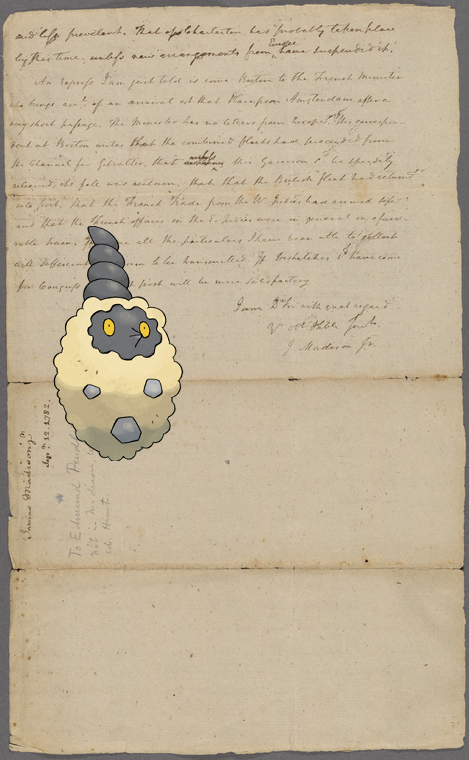 and less prevalent. That of Charleston has probably taken place
by this time, unless new arrangements from Europe have suspended it.
An express I am just told is come Boston to the French Minister
who brings an arrival at that place from Amsterdam after a
very short passage. The Minister has no letters from Europe. His correspon-
dent at Boston writes that the combined fleets have proceeded from
the Channel for Gibralter, that unless this Garrison be speedily
relieved, its fall was that the British fleet had returned
into port, that the French Trade from the W. Indies has arrived safe
and that the French affairs in the E. Indies were in general in a favo-
rable train. are all the particulars I have been able to collect
to be transmitted. If Despatches have come
for Congress post will be more satisfactory
I am Dr Sir with great regard
Yr Servt.
J. Madison Jr.
James Madison Jr
Sepr. 12. 1782.
To Edmund
not in Madison